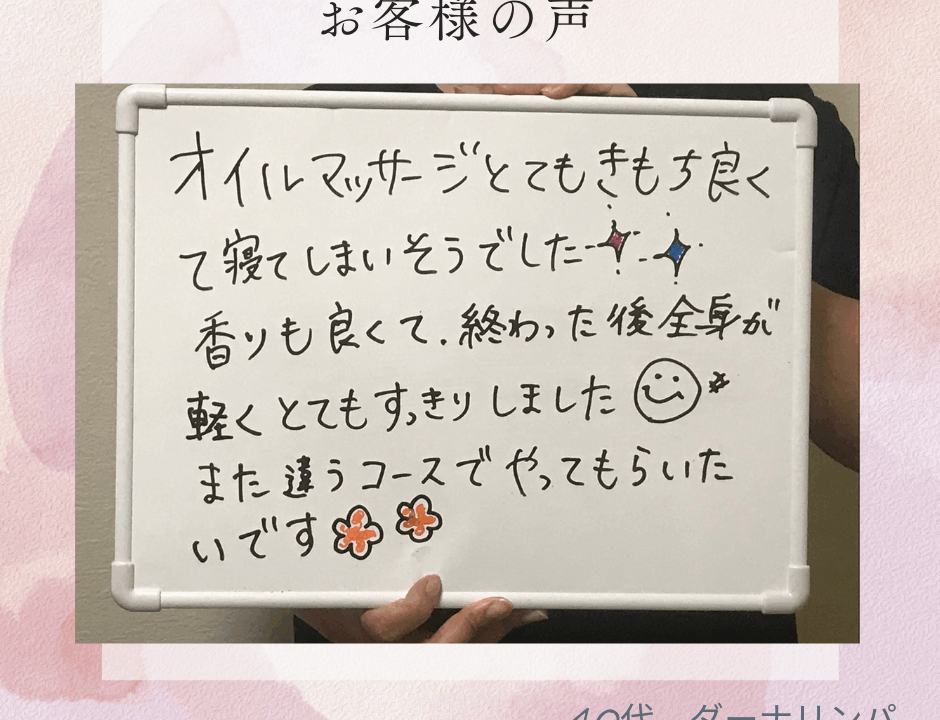 お客様の声
オイルマッサージとてもきもち良く
て寝てしまいそうでした
香りも良くて、終わった後全身が
軽くとてもすっきりしました
また違うコースでやってもらいた
いです
40代 ダーナリンパ